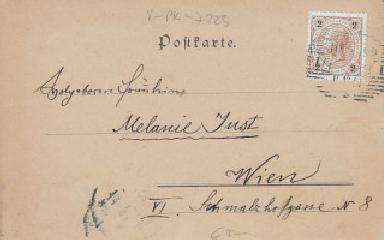 V-PK-7.223
Postkarte.
2
2 2
Hochgeboren Fräulein
Melanie Just
Wien
VI. Schmalzhofgasse N 8